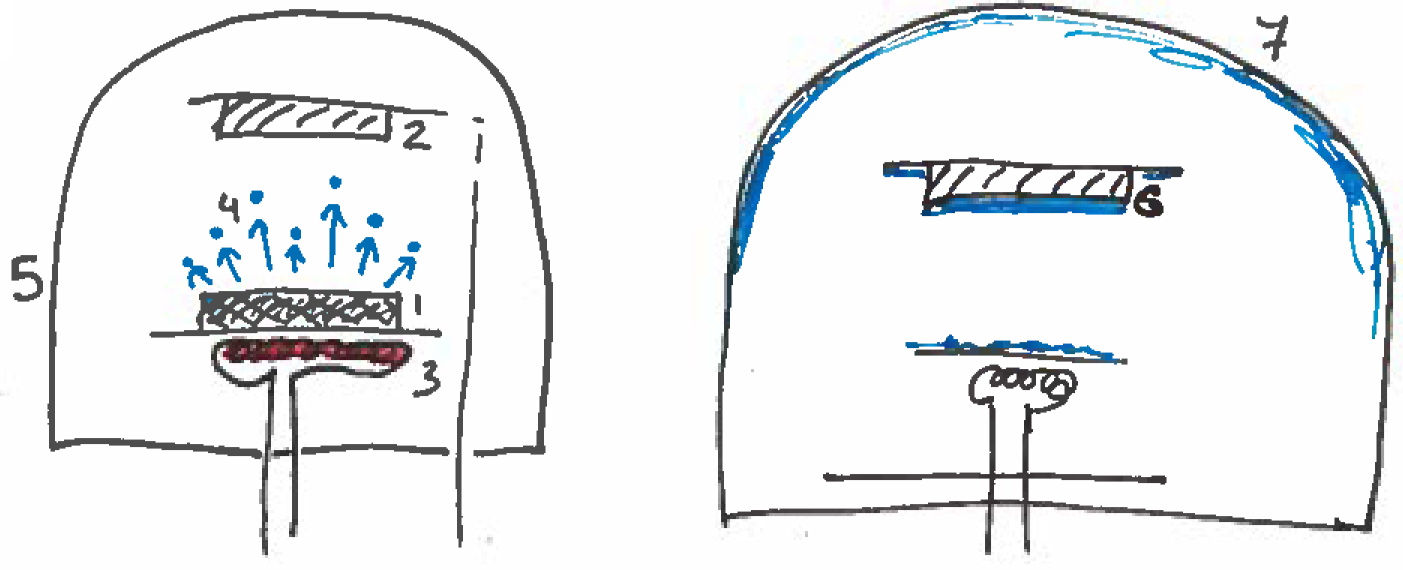 2
4
5
1
3
7
6